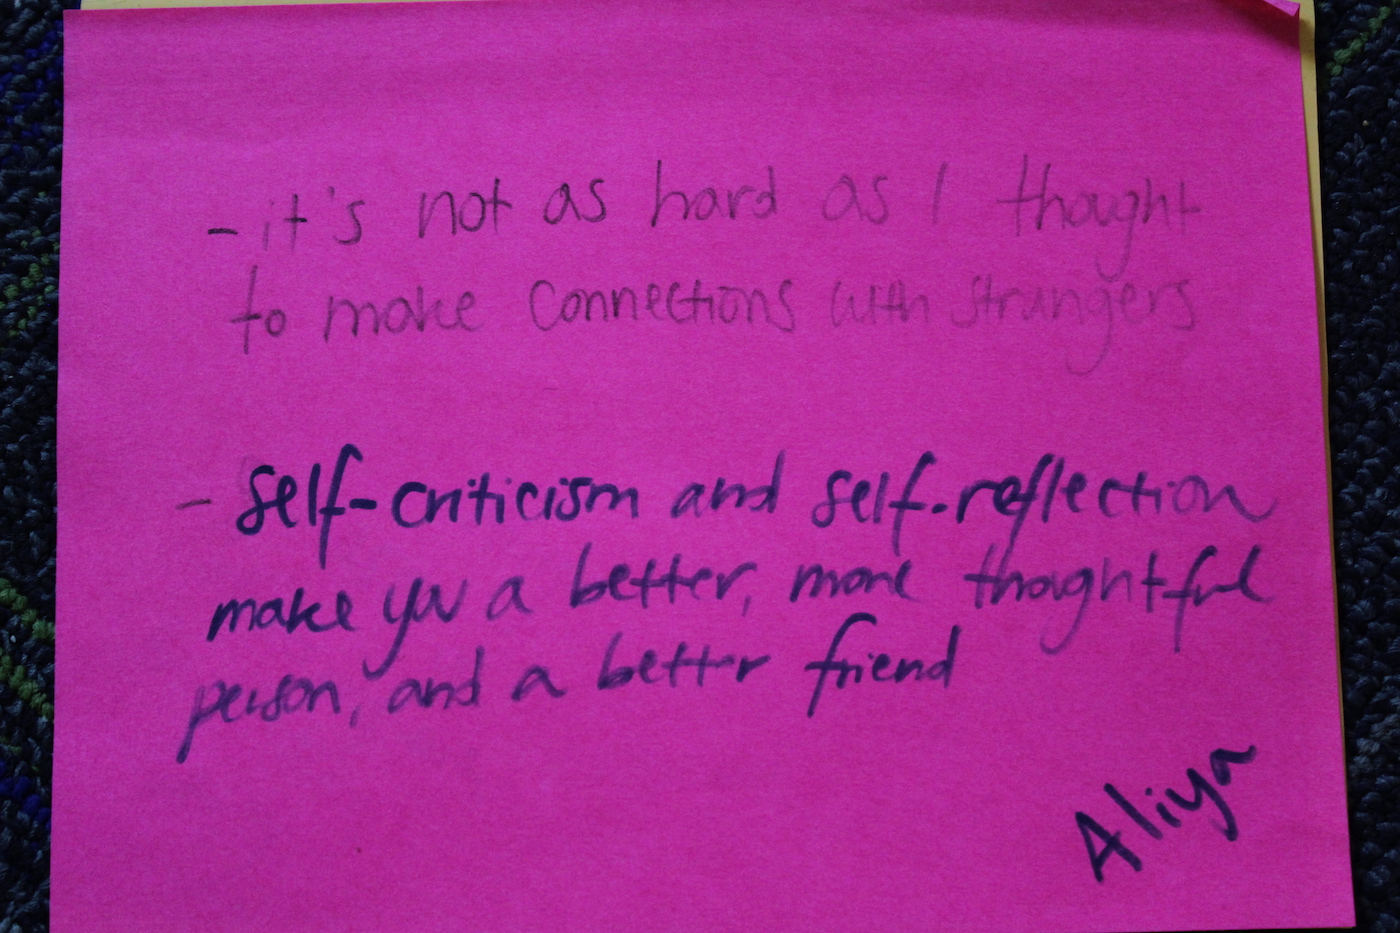 - it's not as hard as I thought
to make connections with strangers
- self-criticism and self-reflection
make you a better, more thoughtful
person, and a better friend
Aliya